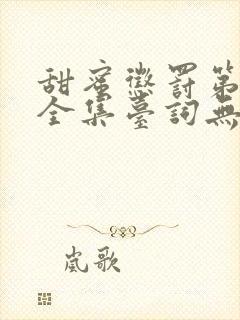 甜蜜懲罰第
全集臺詞無
嵐歌